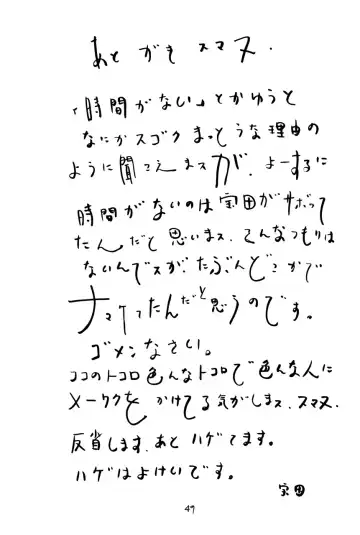 あとがき スマヌ.
「時間がない」とかゆうと
なにかスゴクまっとうな理由の
ように聞こえまスが、よーするに
時間がないのは宝田がサボって
たんだと思いまス.そんなつもりは
ないんでスが、たぶんどっかで
ナマケてたんだと思うのです。
ゴメンなさい。
ココのトコロ色んなトコロで色んな人に
メーワクを かけてる気がしまス.スマヌ.
反省します.あと ハゲてます。
ハゲはよけいです。
宝田
47